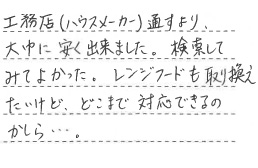 工務店(ハウスメーカー)通すより、
大巾に安く出来ました。検索して
みてよかった。レンジフードも取り換え
たいけど、どこまで対応できるの
かしら…。